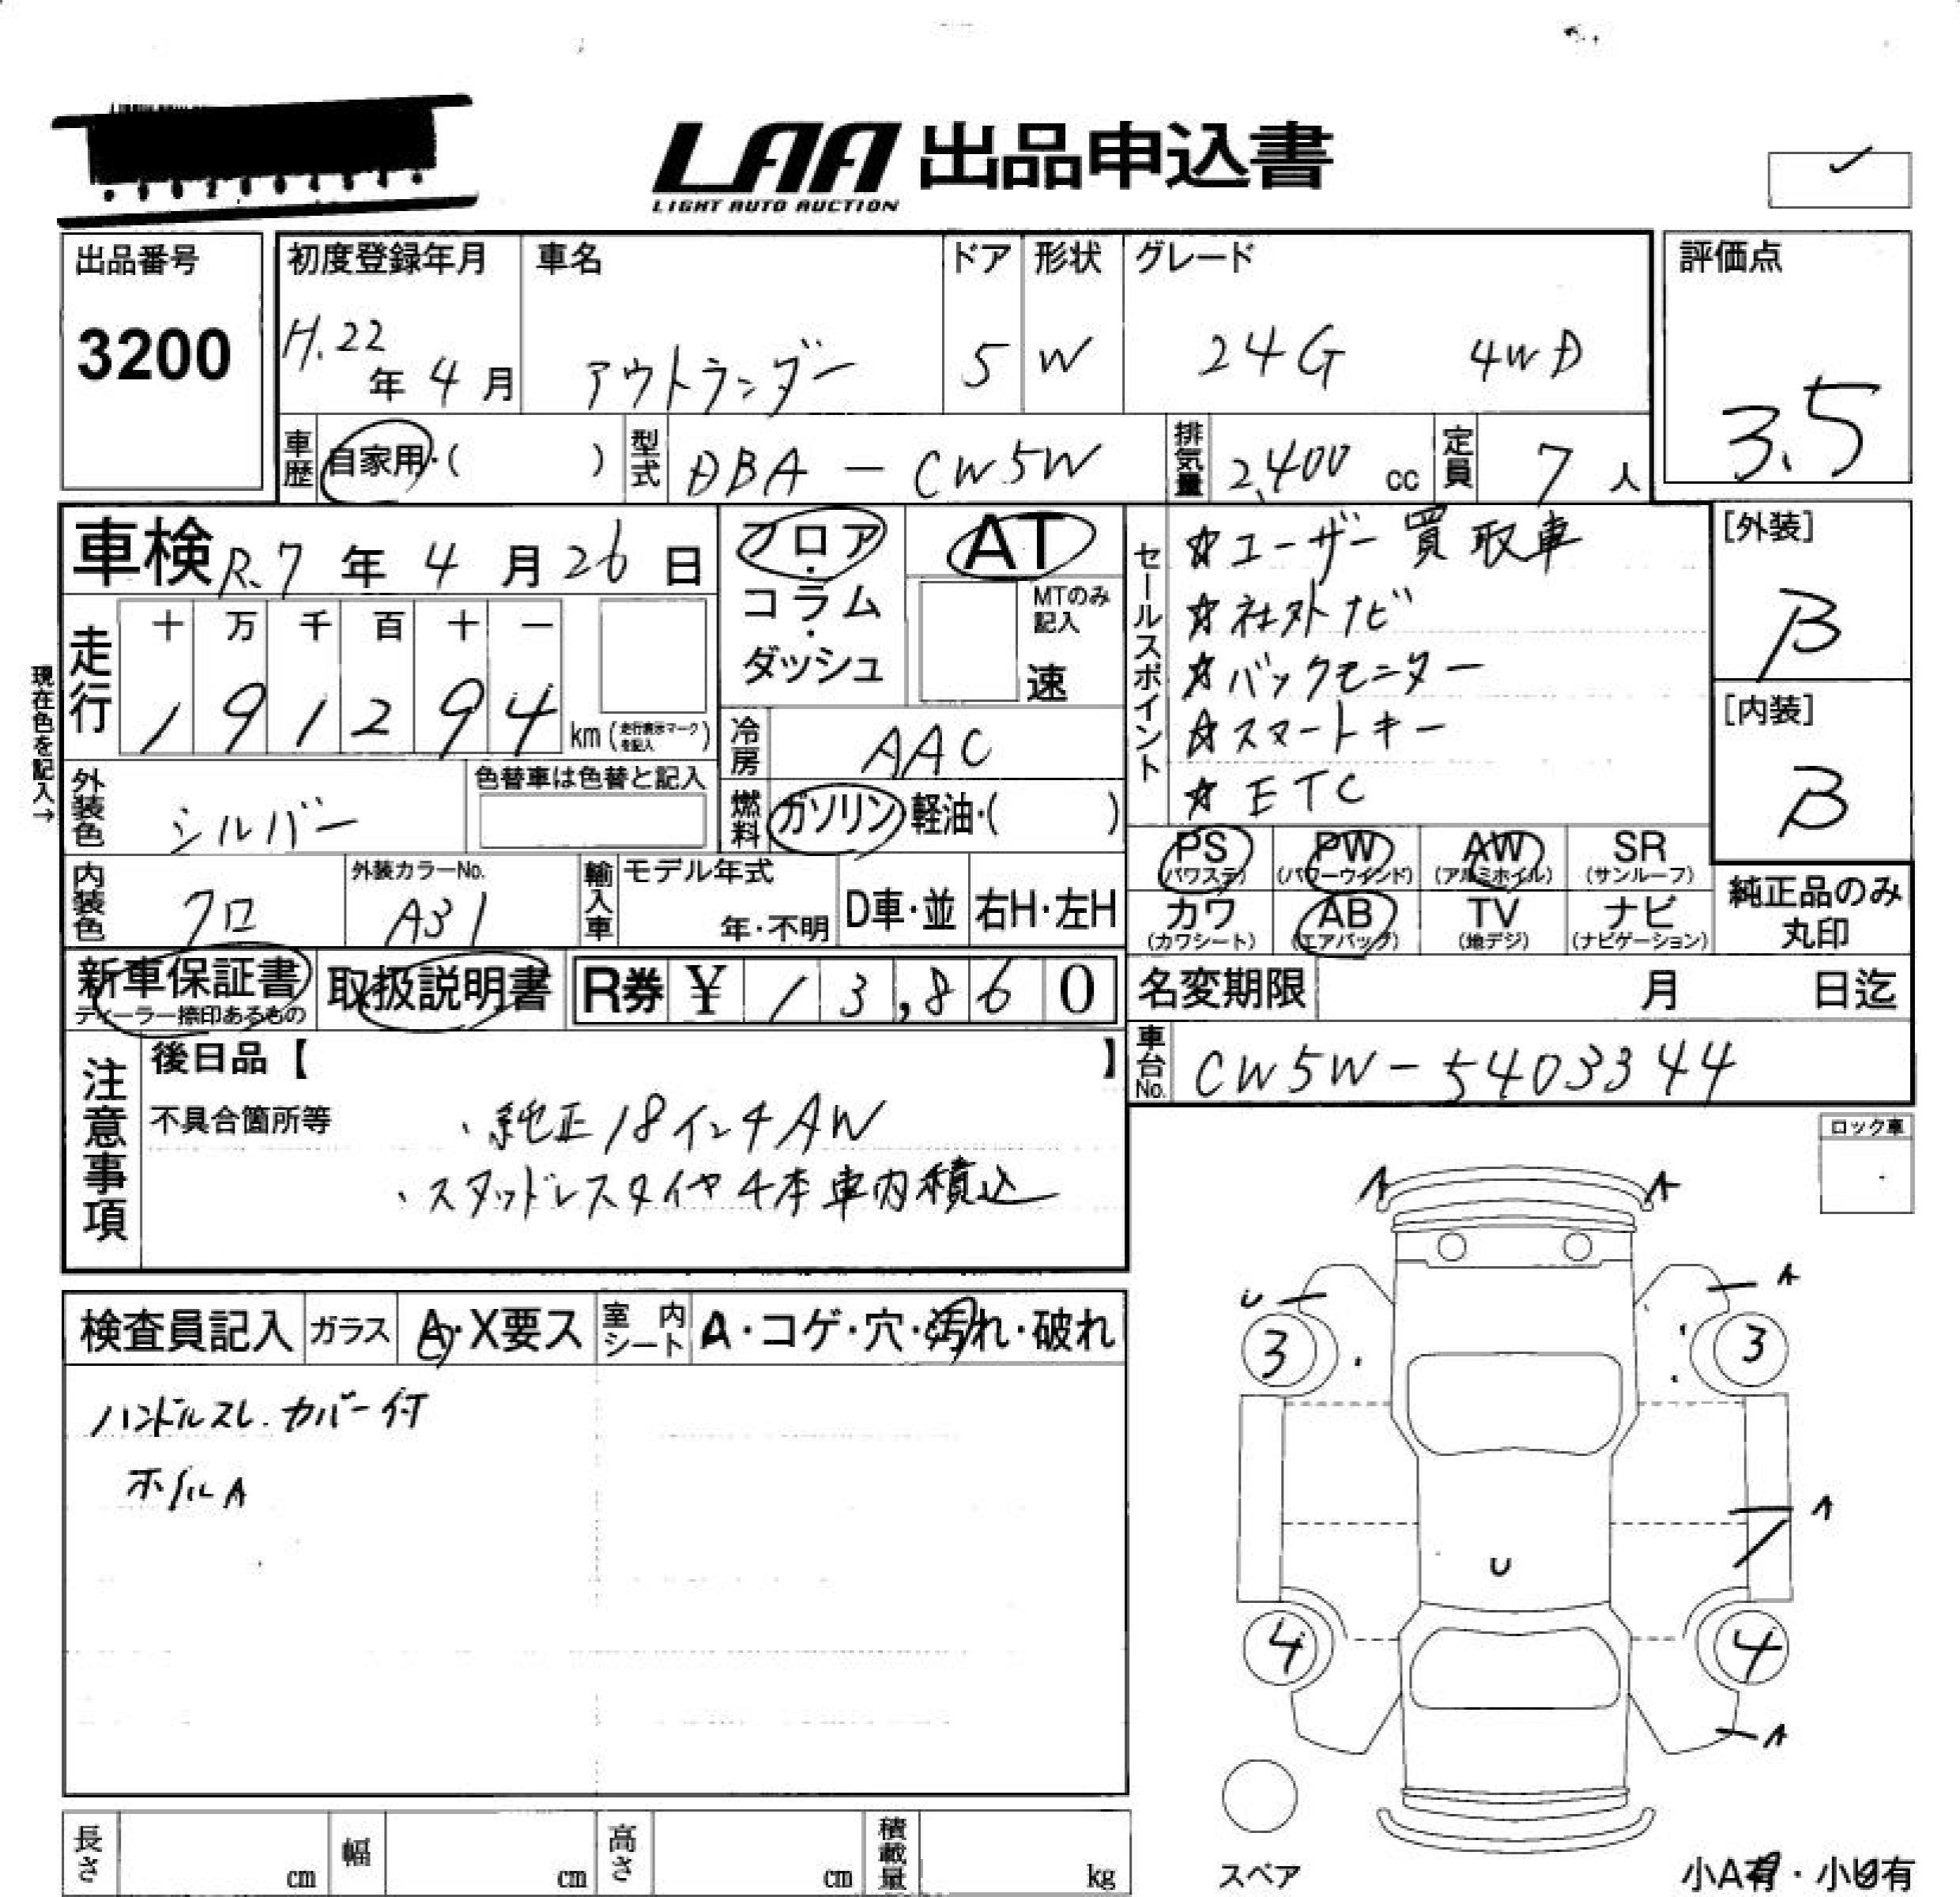 LAA 出品申込書
LIGHT AUTO AUCTION
出品番号
3200
初度登録年月
H.22年 4月
車名
アウトランダー
ドア
5
形状
W
グレード
24G 4WD
評価点
3.5
車歴
自家用・( )
型式
DBA-CW5W
排気量
2,400 cc
定員
7人
車検 R.7年 4月 26日
走行
十 万 千 百 十 一
1 9 1 2 9 4
km (走行表示マークを記入)
現在色を記入→
外装色
シルバー
色替車は色替と記入
内装色
クロ
外装カラーNo.
A31
フロア・コラム・ダッシュ
AT
MTのみ記入
速
冷房
AAC
燃料
ガソリン 軽油・( )
輸入車
モデル年式
年・不明
D車・並
右H・左H
セールスポイント
☆ユーザー買取車
☆社外ナビ
☆バックモニター
☆スマートキー
☆ETC
[外装]
B
[内装]
B
PS (パワステ)
PW (パワーウインド)
AW (アルミホイル)
SR (サンルーフ)
カワ (カワシート)
AB (エアバッグ)
TV (地デジ)
ナビ (ナビゲーション)
純正品のみ
丸印
新車保証書
ディーラー捺印あるもの
取扱説明書
R券 ¥ 13,860
名変期限 月 日迄
車台No.
CW5W-5403344
注意事項
後日品【 】
不具合箇所等
・純正18インチAW
・スタッドレスタイヤ4本車内積込
ロック車
検査員記入
ガラス
A・X要ス
室内シート
A・コゲ・穴・汚れ・破れ
ハンドルスレ.カバー付
ホイルA
A A
U A
3 3
A
U
4 4
A
スペア
小A有・小U有
長さ cm
幅 cm
高さ cm
積載量 kg